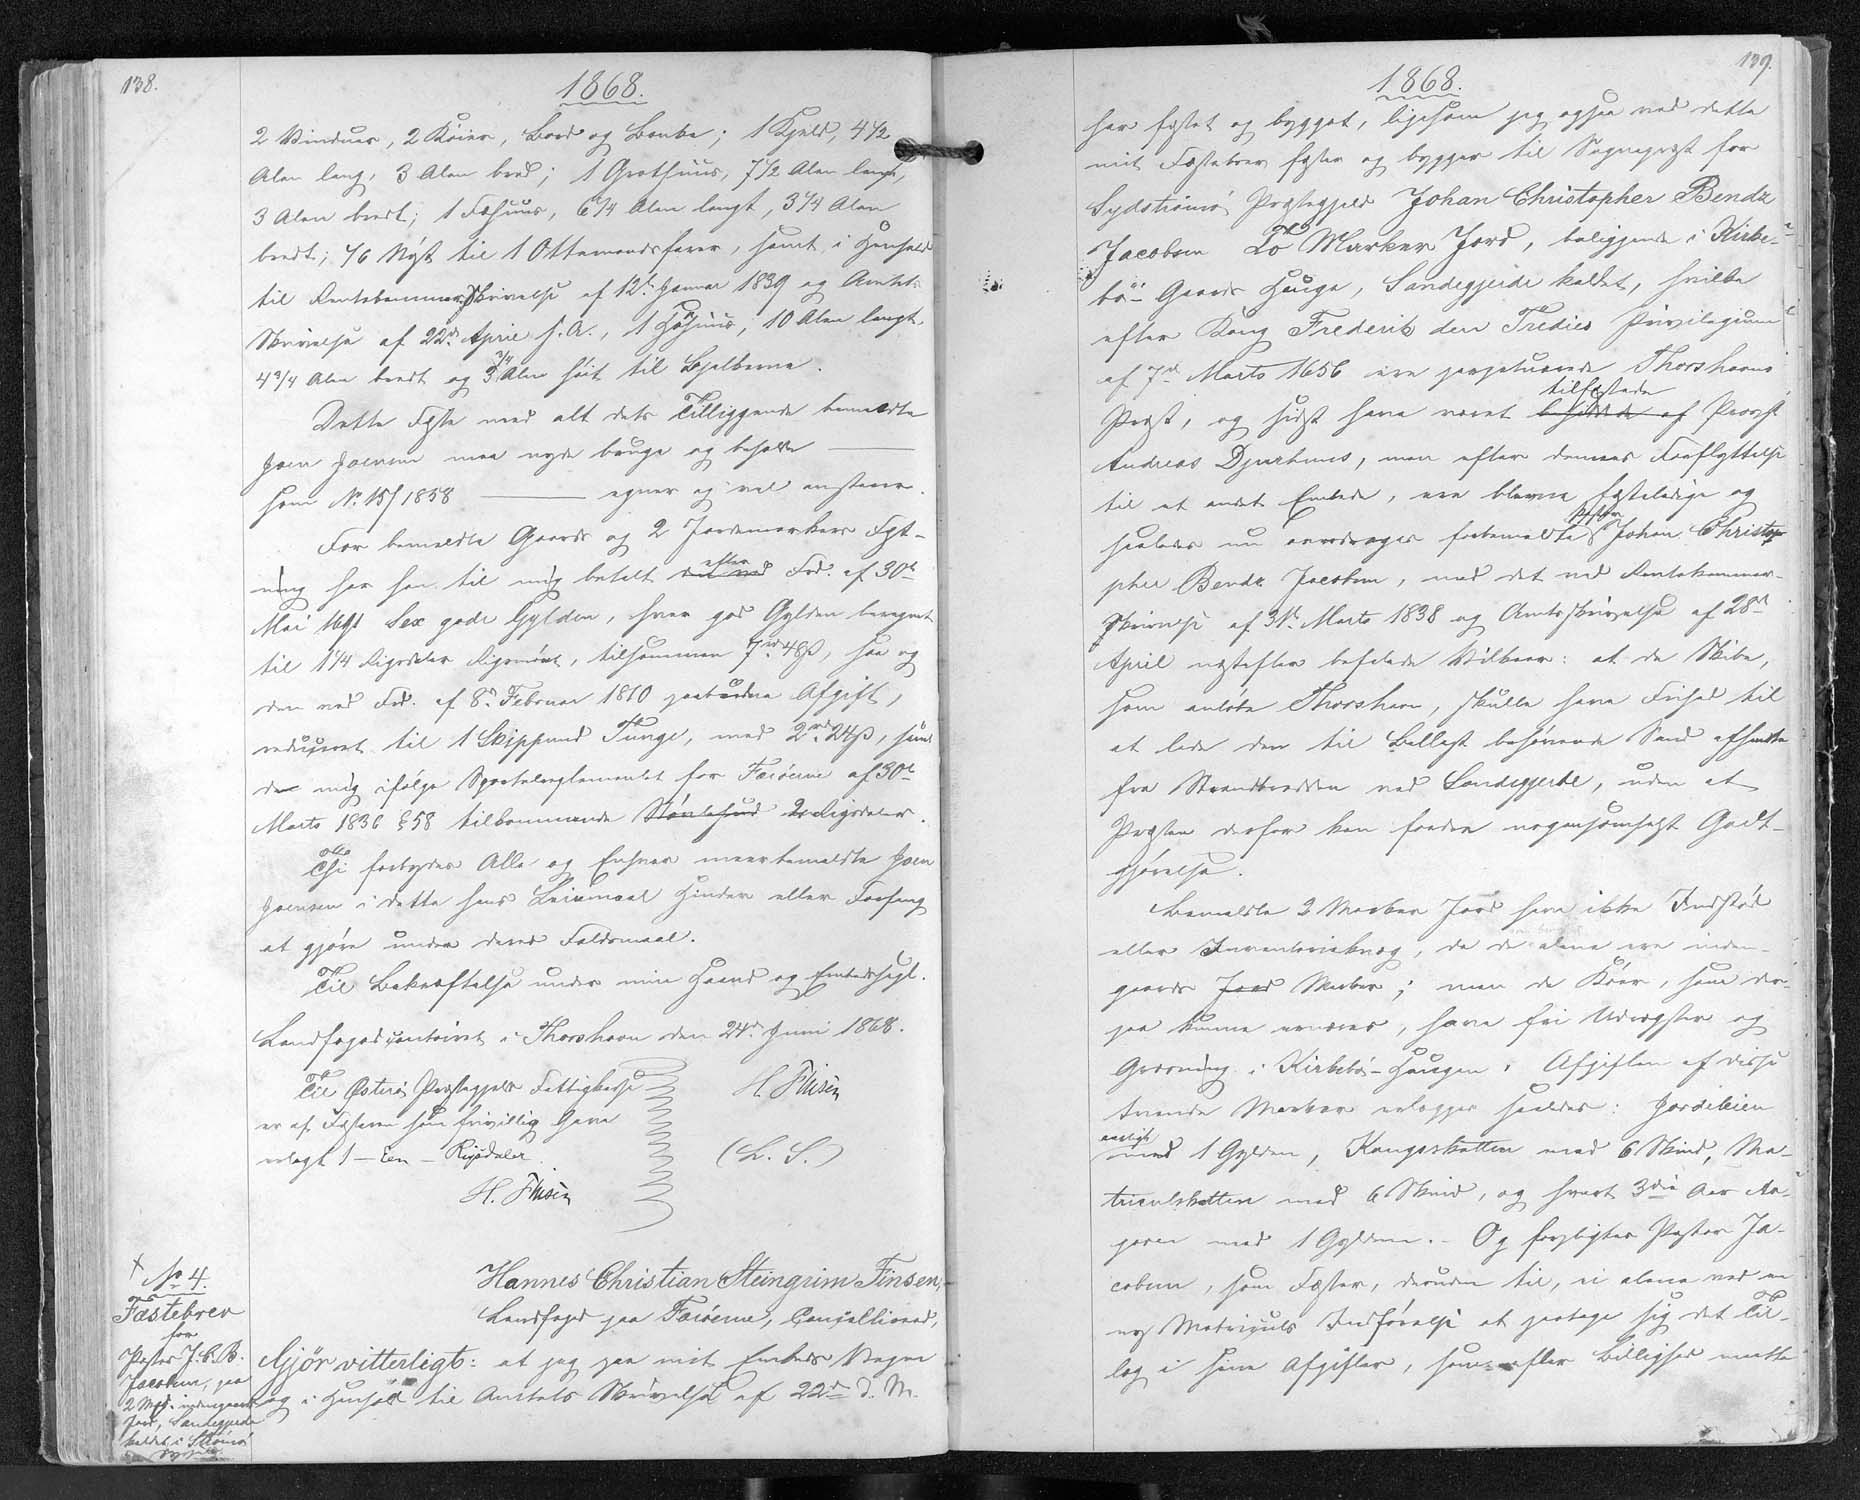 138.
1868.
2 Vinduer, 2 Køier, Bord og Bænke; 1 Kjæld, 4 1/2
Alen lang, 3 Alen bred; 1 Grothuus, 7 1/2 Alen langt,
3 Alen bredt; 1 Fæhuus, 6 1/4 Alen langt, 3 1/4 Alen
bredt; 1/6 Nøst til 1 Ottemandsfarer, samt i Henhold
til Rentekammerskrivelse af 12t Januar 1839 og Amtets
Skrivelse af 22de April s. A., 1 Høhuus, 10 Alen langt,
4 3/4 Alen bredt og 3 3/4 Alen høit til Bjelkerne.
Dette Fæste med alt dets Tilliggende bemeldte
Joen Joensen maa nyde bruge og beholde
som No 15/1858 egner og vel anstaaer.
For bemeldte Gaards og 2 Jordemarkers Fæst-
ning har han til mig betalt efter Frd. af 30te
Mai 1691 Sex gode Gylden, hver god Gylden beregnet
til 1 1/4 Rigsdaler Rigsmønt, tilsammen 7rd 48ß, saa og
den ved Frd. af 8de Februar 1810 paabudne Afgift,
reduceret til 1 Skippund Tunge, med 2rd 24ß, samt
de mig ifølge Sportelreglementet for Færøerne af 30te
Marts 1836 § 58 tilkommende 2 Rigsdaler.
Thi forbydes Alle og Enhver meerbemeldte Joen
Joensen i dette hans Leiemaal Hinder eller Forfang
at gjøre under deres Faldsmaal.
Til Bekræftelse under min Haand og Embedssegl.
Landfogedcontoiret i Thorshavn den 24de Juni 1868.
Til Østerø Præstegjelds Fattigkasse
H. Finsen
er af Fæsteren som frivillig Gave
erlagt 1 – Een – Rigsdaler
(L. S.)
H. Finsen
No 4.
Fæstebrev
for
Pastor J. C. B.
Jacobsen, paa
2 Mkr. indengaards
Jord, Sandegjerde
kaldet i Strømø
Hannes Christian Steingrim Finsen,
Landfoged paa Færøerne, Cancelliraad,
Gjør vitterligt: at jeg paa mit Embeds Vegne
og i Henhold til Amtets Skrivelse af 22de d. M.
139.
1868.
har fæstet og bygget, ligesom jeg ogsaa ved dette
mit Fæstebrev fæster og bygger til Sognepræst for
Sydstrømø Præstegjeld Johan Christopher Bendz
Jacobsen To Marker Jord, beliggende i Kirke-
bø- Gaards Hauge, Sandegjerde kaldet, hvilke
efter Kong Frederik den Tredies Privilegium
af 7de Marts 1656 ere perpetuerede Thorshavns
tilfæstede
Præst, og sidst have været Provst
Andreas Djurhuus, men efter dennes Forflyttelse
til et andet Embede, ere blevne fæsteledige og
Pastor
saaledes nu overdrages forbemeldte Johan Christo-
pher Bendz Jacobsen, med det ved Rentekammer-
skrivelse af 31te Marts 1838 og Amtsskrivelse af 28de
April næstefter befalede Vilkaar: at de Skibe,
som anløbe Thorshavn, skulle have Frihed til
at lade den til Ballast behøvende Sand afhente
fra Strandbredden ved Sandegjerde, uden at
Præsten derfor kan fordre nogensomhelst Godt-
gjørelse.
Bemeldte 2 Marker Jord have ikke Indstød
eller Inventariekvæg, da de alene ere inden-
gaards Marker; men de Køer, som der-
paa kunne ernæres, have fri Udrægster og
Græsning i Kirkebø-Haugen. Afgiften af disse
tvende Marker erlægges saaledes: Jordeleien
aarligt
med 1 Gylden, Kongsskatten med 6 Skind, Ma-
triculskatten med 6 Skind, og hvert 3die Aar
med 1 Gylden. – Og forpligter Pastor Ja-
cobsen, som Fæster, desuden til, ei alene ved en
ny Matriculs Indførelse at paatage sig det Til-
læg i sine Afgifter, som efter Billighed maatte